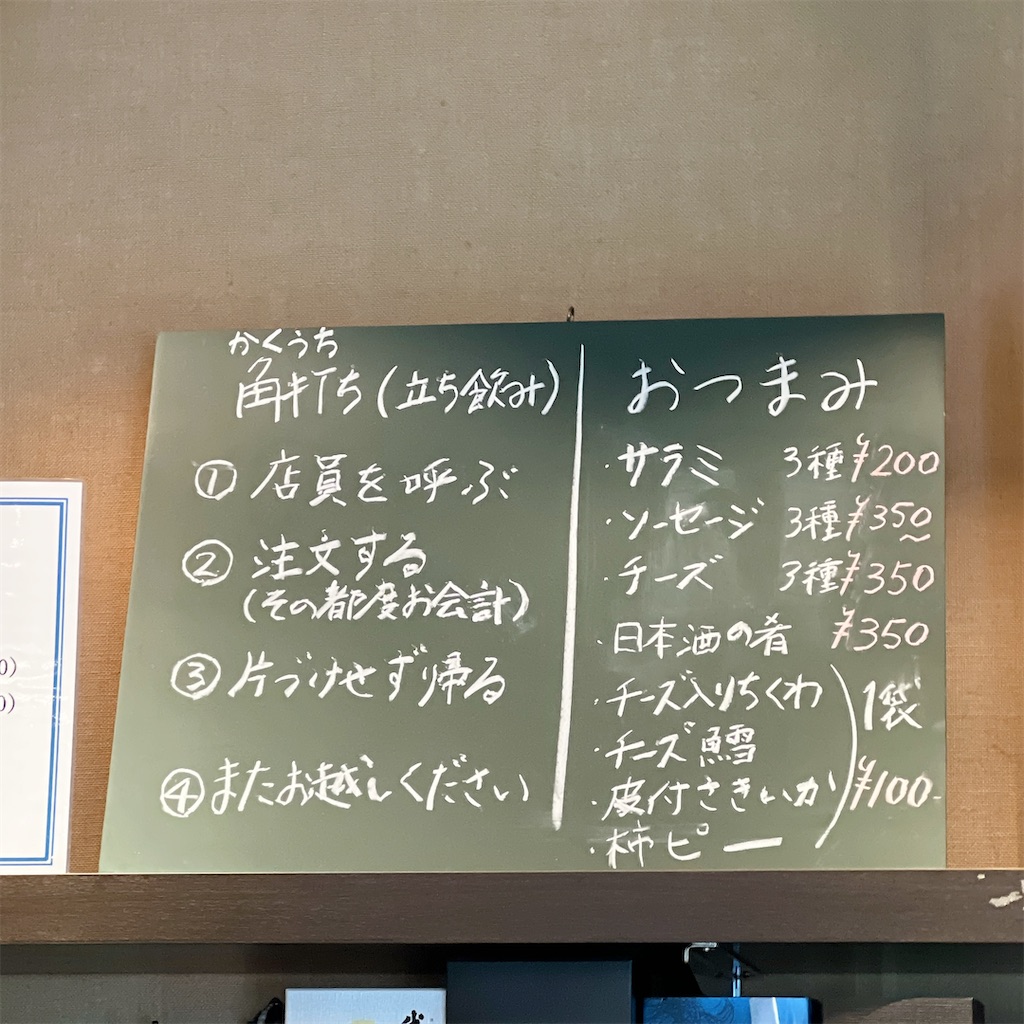 かくうち
角打ち(立ち飲み)
① 店員を呼ぶ
② 注文する
(その都度お会計)
③ 片づけせず帰る
④ またお越しください
おつまみ
・サラミ 3種 ¥200
・ソーセージ 3種 ¥350~
・チーズ 3種 ¥350
・日本酒の肴 ¥350
・チーズ入りちくわ
・チーズ鱈
・皮付さきいか
・柿ピー
1袋
¥100-
0)
0)